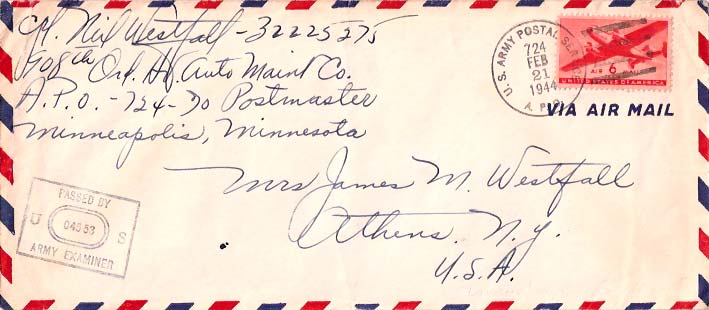 Cpl. Neil Westfall - 32225275
708th Ord. Hv. Auto Maint Co.
A.P.O. - 724 - % Postmaster
Minneapolis, Minnesota
U.S. ARMY POSTAL SERVICE
724
FEB
21
1944
A. P. O.
AIR 6 MAIL
UNITED STATES OF AMERICA
VIA AIR MAIL
Mrs James M. Westfall
Athens, N.Y.
U.S.A.
PASSED BY
U 04553 S
ARMY EXAMINER